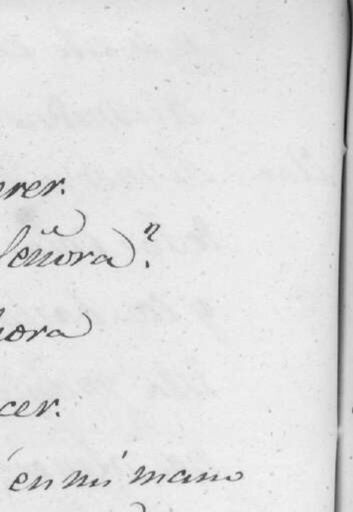 rer.
Señora)ⁿ.
hora
cer.
en mi mano